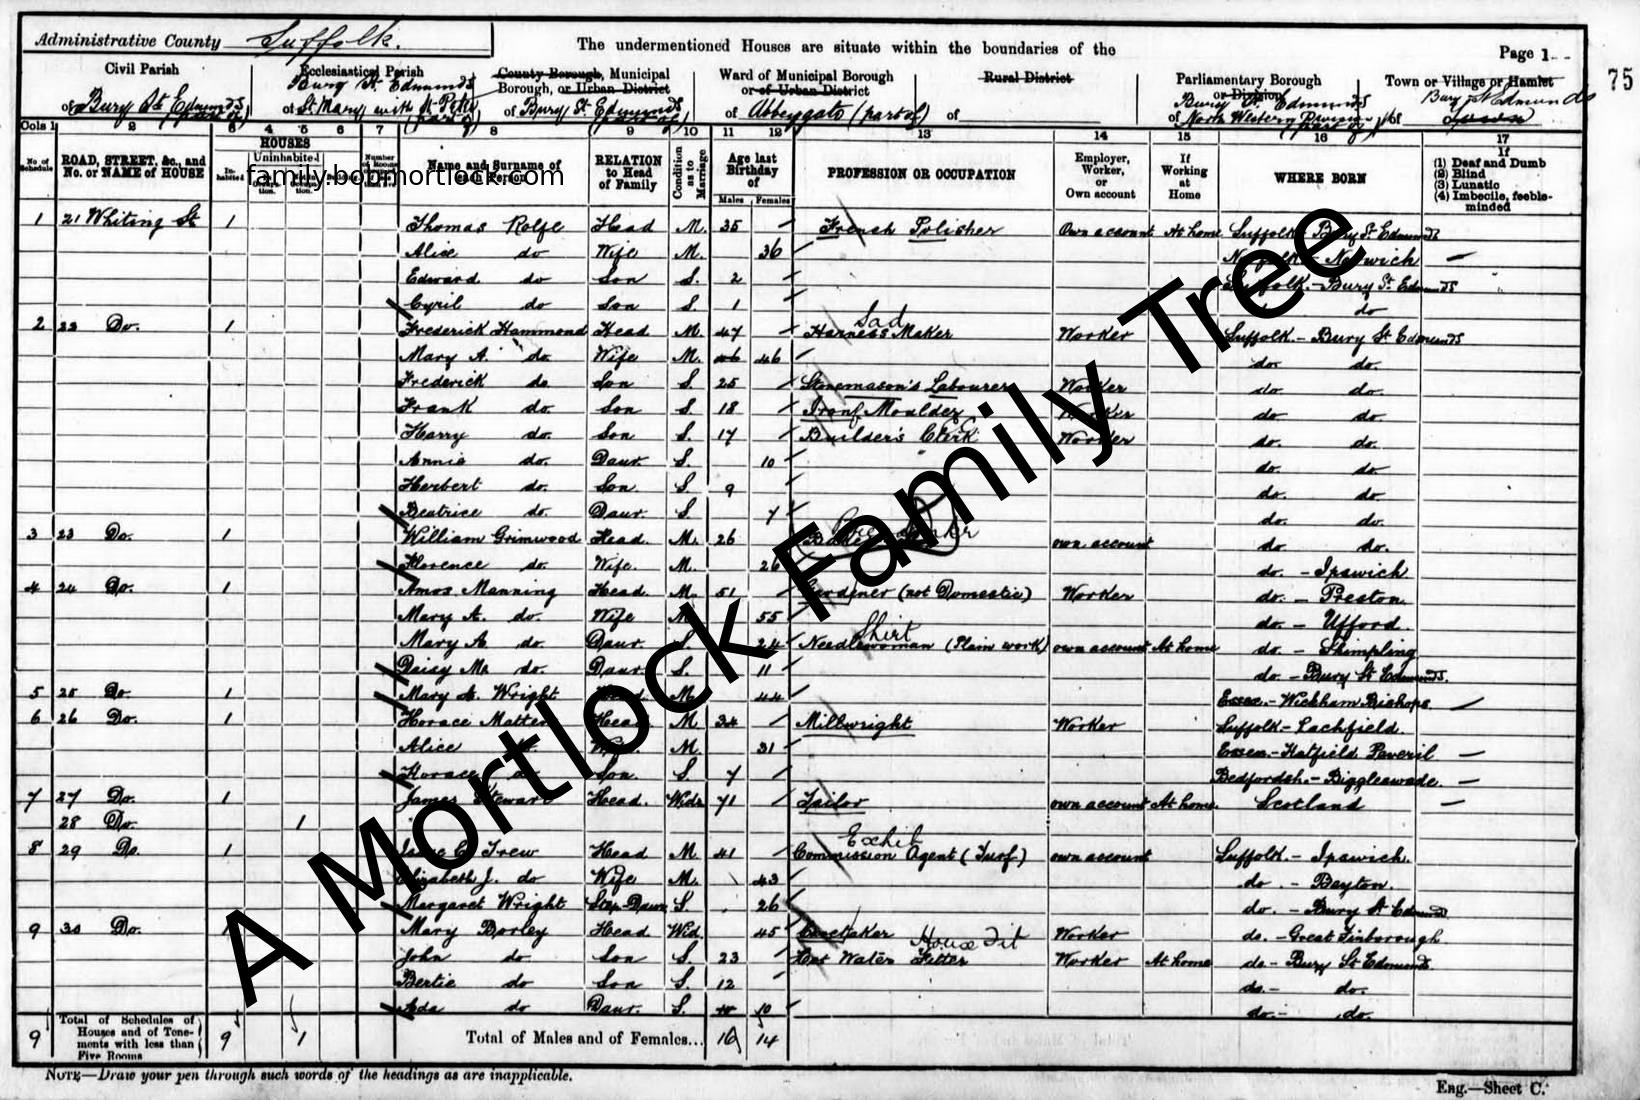 Administrative County Suffolk.
The undermentioned Houses are situate within the boundaries of the
Page 1
75
Civil Parish
of Bury St Edmunds (part of)
Ecclesiastical Parish
Bury St. Edmunds
of St. Mary with St Peter (part of)
County Borough, Municipal Borough, or Urban District
of Bury St. Edmunds (part of)
Ward of Municipal Borough or of Urban District
of Abbeygate (part of)
Rural District
of
Parliamentary Borough or Division
Bury St. Edmunds
of North Western Division (part of)
Town or Village or Hamlet
Bury St Edmunds
of Town
Cols 1 2 3 4 5 6 7 8 9 10 11 12 13 14 15 16 17
No. of Schedule
ROAD, STREET, &c., and No. or NAME of HOUSE
HOUSES
Inhabited
Uninhabited
family.bobmortlock.com
Name and Surname of each Person
RELATION to Head of Family
Condition as to Marriage
Age last Birthday of
Males Females
PROFESSION OR OCCUPATION
Employer, Worker, or Own account
If Working at Home
WHERE BORN
If
(1) Deaf and Dumb
(2) Blind
(3) Lunatic
(4) Imbecile, feeble-minded
1 21 Whiting St 1 Thomas Rolfe Head M. 35 French Polisher Own account At home Suffolk - Bury St Edmunds
Alice do Wife M. 36 Norfolk - Norwich
Edward do Son S. 2 Suffolk - Bury St. Edmunds
Cyril do Son S. 1 do
2 22 Do. 1 Frederick Hammond Head M. 47 Sad Harness Maker Worker Suffolk - Bury St Edmunds
Mary A. do Wife M. 46 46 do. do.
Frederick do Son S. 25 Stonemason's Labourer Worker do. do.
Frank do. Son S. 18 Iron Moulder Worker do. do.
Harry do. Son S. 17 Builder's Clerk Worker do. do.
Annie do. Daur. S. 10 do. do
Herbert do. Son. S. 9 do. do
Beatrice do. Daur. S. 7 do. do.
3 23 Do. 1 William Grimwood Head. M. 26 own account do. do.
Florence do. Wife. M. 26 do. - Ipswich
4 24 Do. 1 Amos Manning Head. M. 51 Gardener (not Domestic) Worker do. - Preston
Mary A. do. Wife M. 55 do. - Ufford.
Mary A do. Daur. S. 24 Shirt Needlewoman (Plain work) own account At home do. - Shimpling
Daisy Me do. Daur. S. 11 do. - Bury St Edmunds.
5 25 Do 1 Mary A. Wright Head M. 44 Essex - Wickham Bishops
6 26 Do. 1 Horace Matten Head M 34 Millwright Worker Suffolk - Lachfield.
Alice do Wife M. 31 Essex - Hatfield Peveril
Horace do Son S. 7 Bedfordsh. - Biggleswade.
7 27 Do. 1 James Stewart Head. Widr 71 Tailor own account At home. Scotland
28 Do. 1
8 29 Do. 1 Isaac C. Trew Head M. 41 Exhib Commission Agent (Turf) own account Suffolk. - Ipswich.
Elizabeth J. do Wife M. 43 do. - Beyton.
Margaret Wright Step-Daur S. 26 do. - Bury St Edmunds
9 30 Do. 1 Mary Borley Head Wid. 45 Caretaker Worker do. - Great Finborough
John do Son S. 23 House Fit Hot Water Fitter Worker At home do - Bury St Edmunds.
Bertie do Son S. 12 do. - do.
Ada do Daur. S. 10 do. - do.
9 Total of Schedules of Houses and of Tenements with less than Five Rooms 9 1 Total of Males and of Females... 16 14
NOTE—Draw your pen through such words of the headings as are inapplicable.
Eng.—Sheet C.
A Mortlock Family Tree